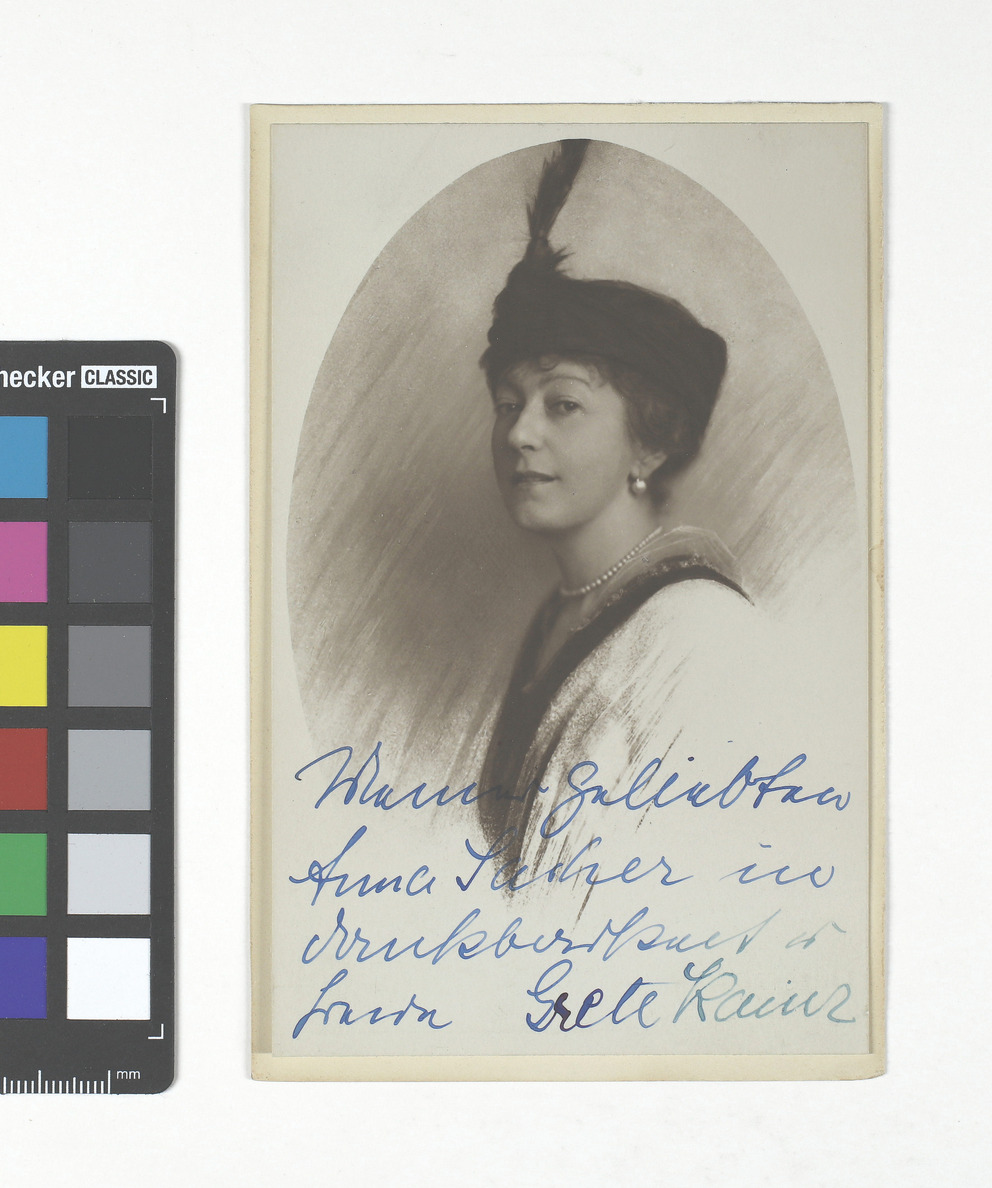 hecker CLASSIC
Meiner geliebten
Anna Sacher in
dankbarkeit u
Freude Grete Kainz
mm